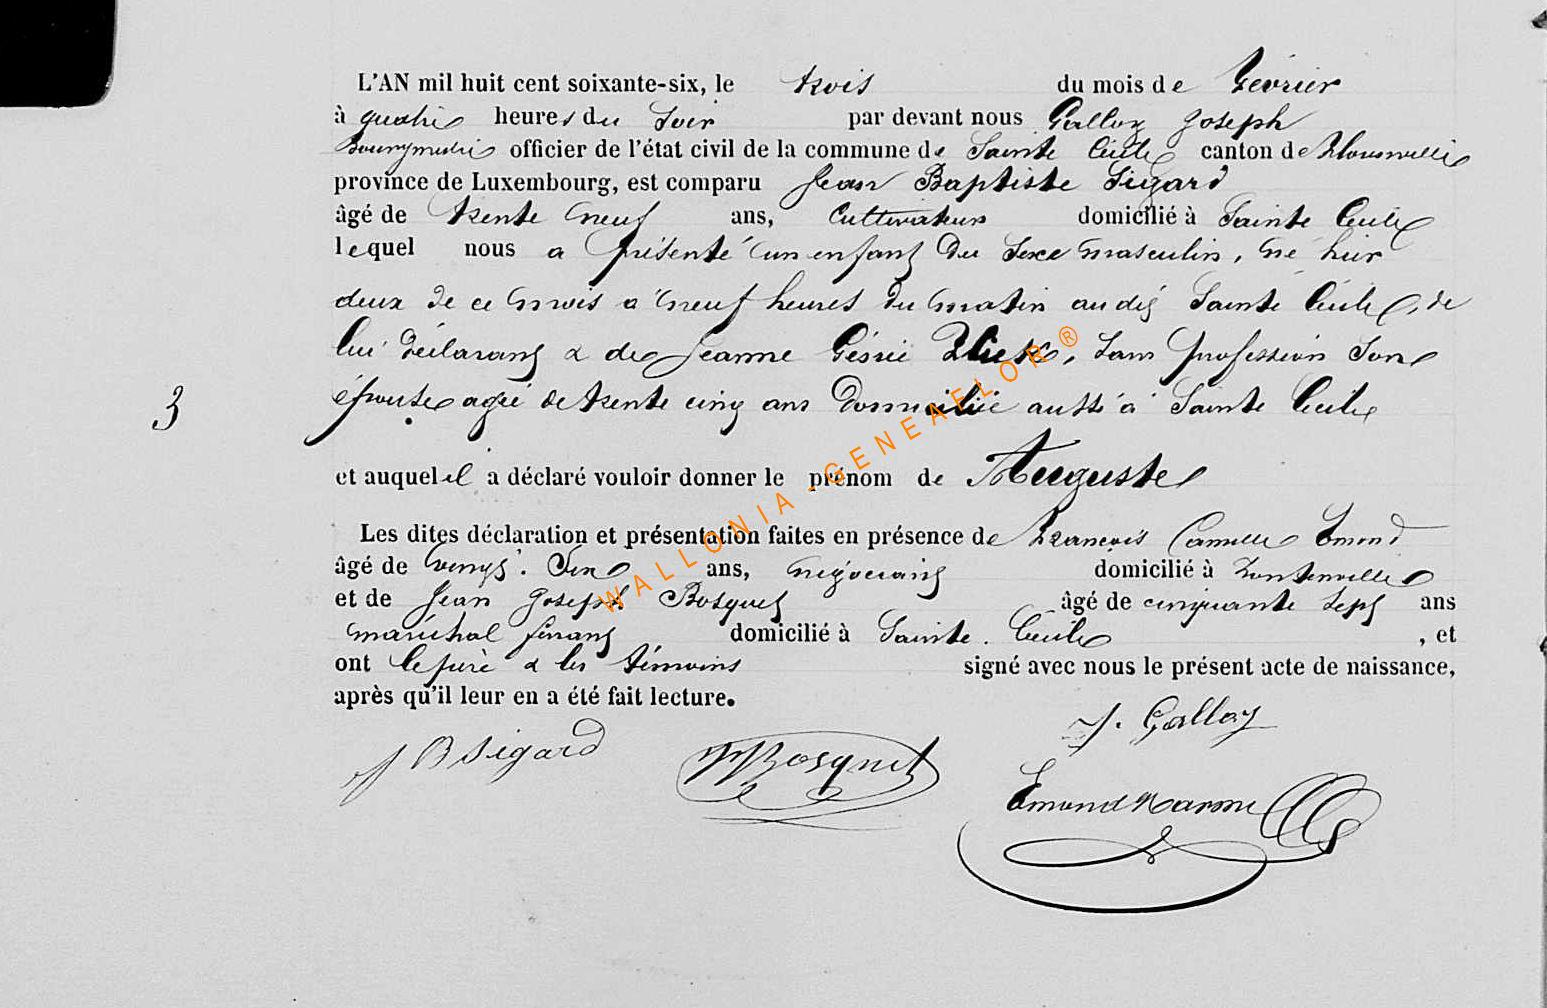 L'AN mil huit cent soixante-six, le trois du mois de février
à quatre heures du soir par devant nous Galloy Joseph
Bourgmestre officier de l'état civil de la commune de Sainte Cécile canton de Florenville
province de Luxembourg, est comparu Jean Baptiste Sigard
âgé de trente neuf ans, Cultivateur domicilié à Sainte Cécile
lequel nous a présenté un enfant du sexe masculin, né hier
deux de ce mois à neuf heures du matin au dit Sainte Cécile, de
lui déclarant & de Jeanne sans profession son
épouse agée de trente cinq ans domiciliée aussi à Sainte Cécile
3
et auquel il a déclaré vouloir donner le prénom de Auguste
Les dites déclaration et présentation faites en présence de François Camille Emond
âgé de vingt ans, négociant domicilié à Fontenoille
et de Jean Joseph Bosquet âgé de cinquante sept ans
maréchal ferrant domicilié à Sainte Cécile , et
ont le père & les témoins signé avec nous le présent acte de naissance,
après qu'il leur en a été fait lecture.
J. Galloy
J B Sigard
Bosquet
Emond
WALLONIA-GENEAELOR®